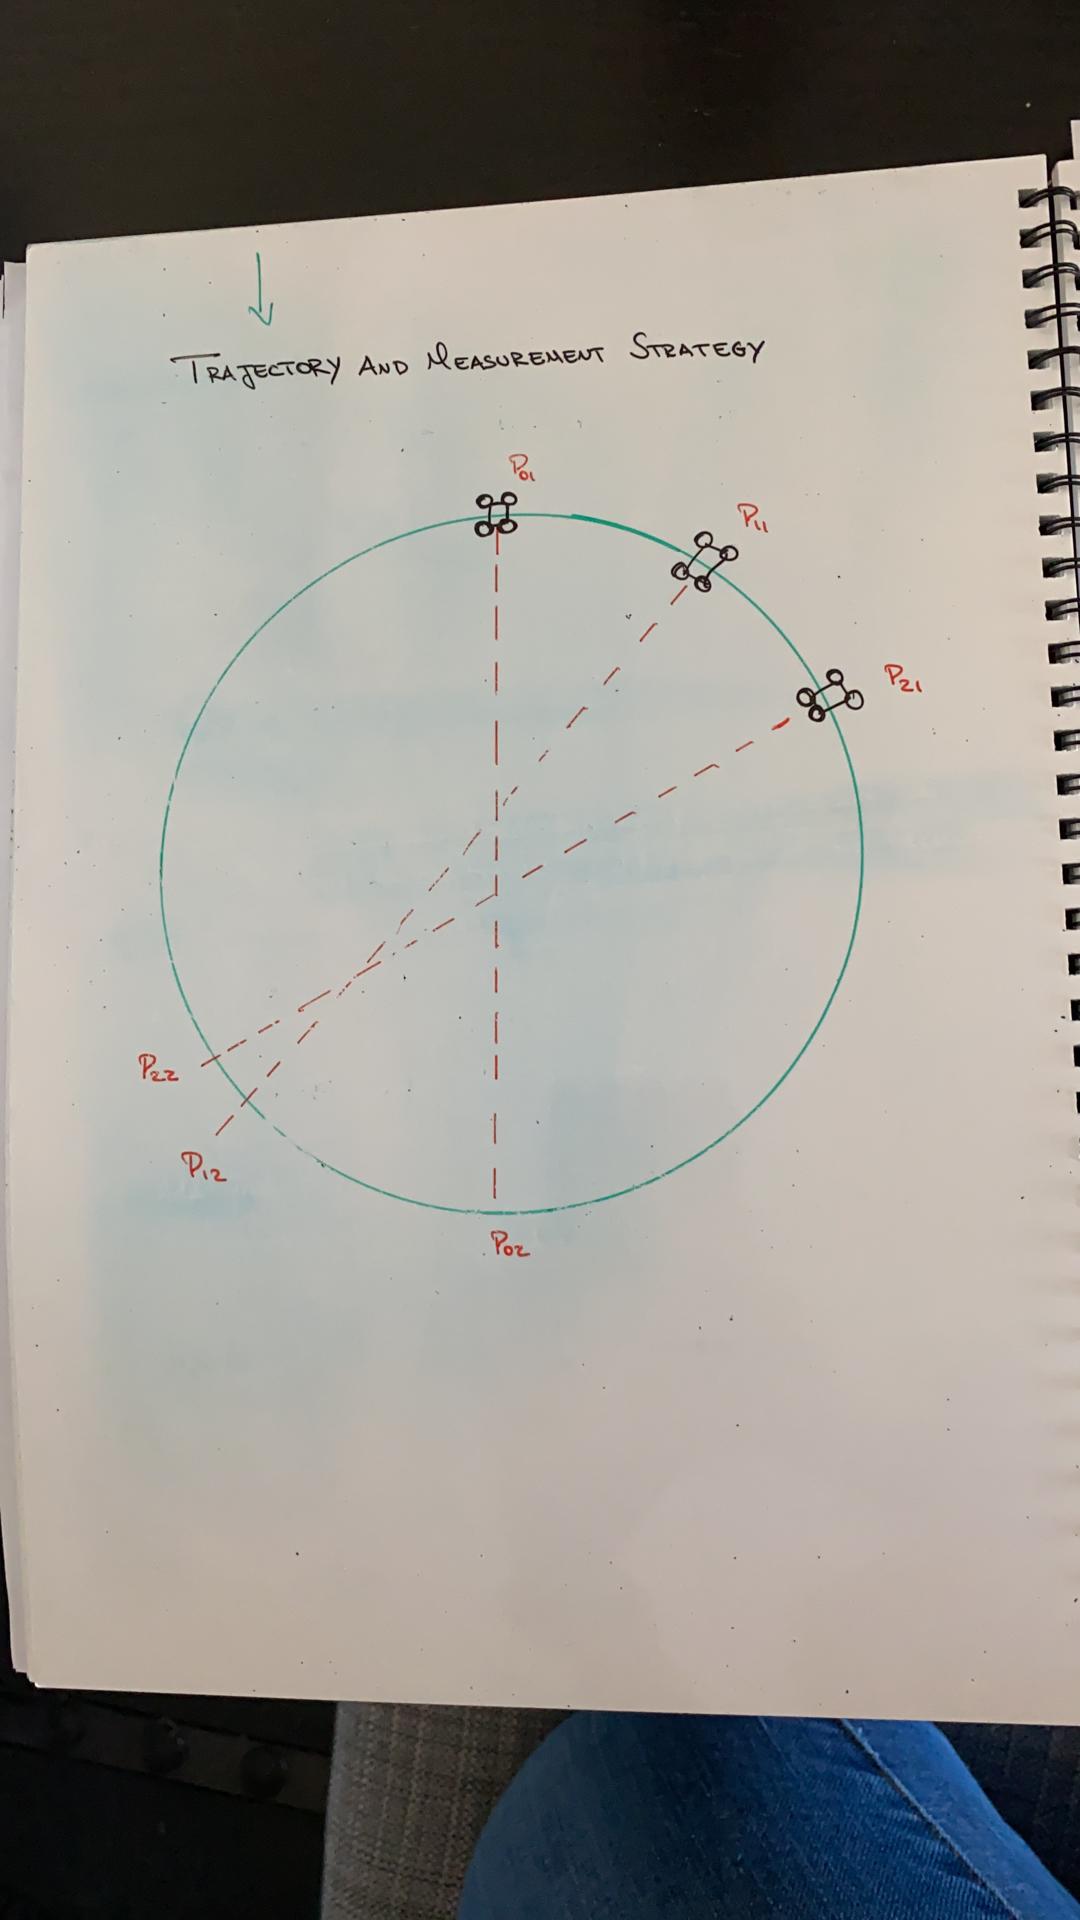 TRAJECTORY AND MEASUREMENT STRATEGY
P01
P11
P21
P22
P12
P02